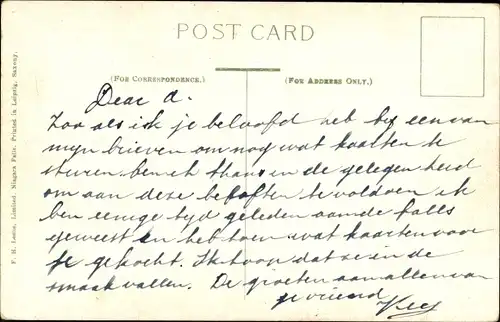 POST CARD
(FOR CORRESPONDENCE.)
(FOR ADDRESS ONLY.)
F. H. Leslie, Limited, Niagara Falls. Printed in Leipzig, Saxony.
Dear a.
Zoo als ik je beloofd heb by een van
myn brieven om nog wat kaarten te
sturen ben ik thans in de gelegen heid
om aan deze beloften te voldoen ik
ben eenige tyd geleden aan de falls
geweest en heb toen wat kaarten voor
je gekocht. Ik hoop dat ze in de
smaak vallen. De groeten aan allen van
je vriend